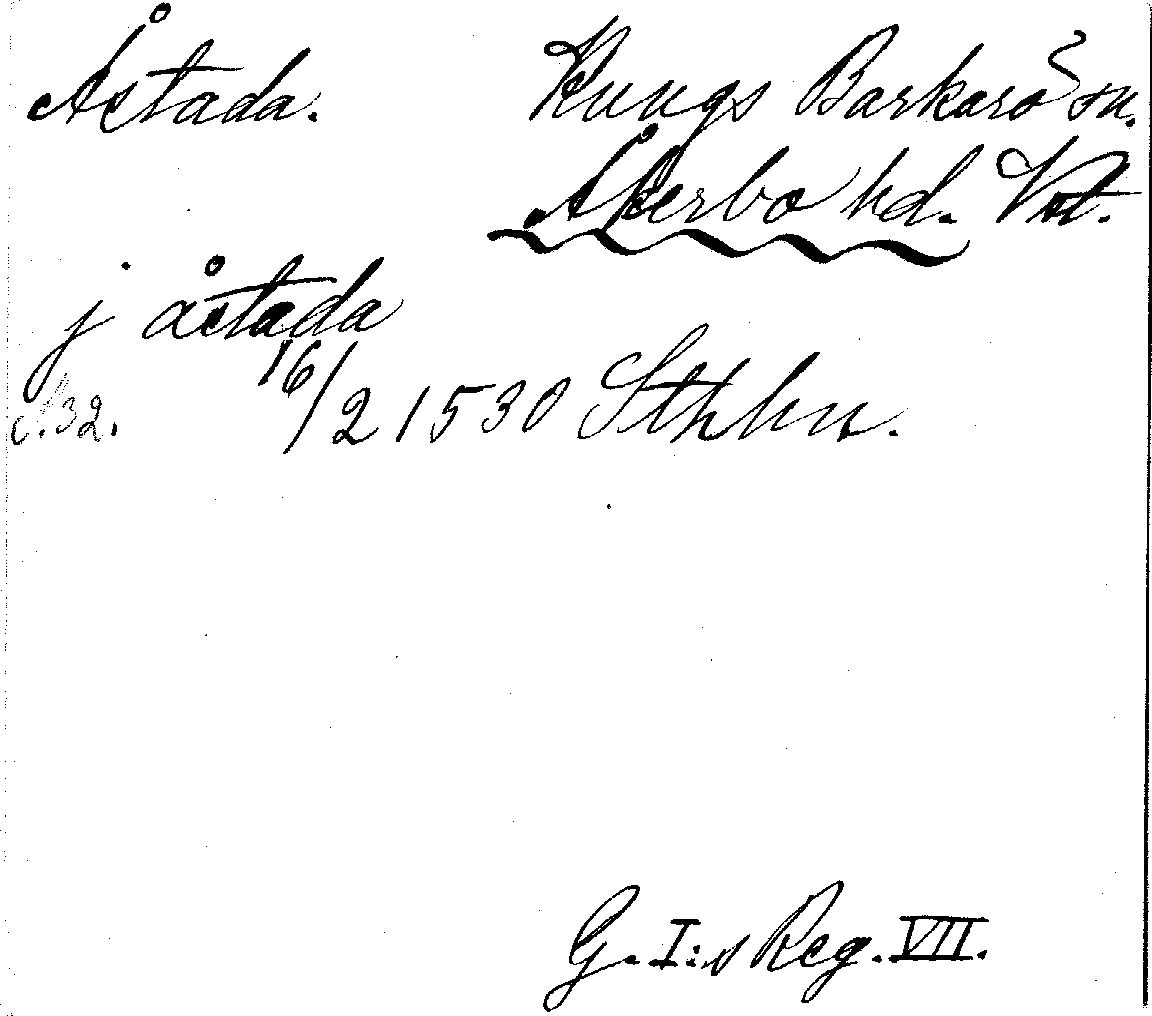 Åstada. Kungs Barkarö sn.
Åkerbo hd. Vstm.
j åstada
S. 32. 16/2 1530 Sthlm.
G. I:s Reg. VII.